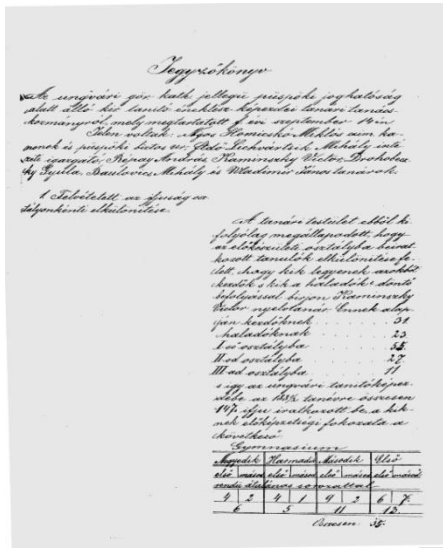 Jegyzőkönyv
Az ungvári gör. kath. jellegü püspöki joghatóság
alatt álló kir. tanitó énekész képezdei tanári tanács
kozmányról, mely megtartatott f. évi szeptember 14-én
Jelen voltak: Ngos Homicskó Miklós aim. ka-
nonok és püspöki biztos ur, Ftdő Lechvártsik Mihály inté-
zeti igazgató, Répay András, Kaminszky Victor, Drohobecz-
ky Gyula, Baulovics Mihály és Wladimir János tanárok.
1. Felvétetett az ifjuság osz-
tályonkénti elkülönitése.
A tanári testület ebből ki-
folyólag megállapodott, hogy
az előkészületi osztályba beirat-
kozott tanulók elkülönitése fe-
lett, hogy kik legyenek azokból
kezdők s kik a haladók: döntő
befolyással birjon Kaminszky
Victor nyelvtanár. Ennek alap-
ján kezdőknek . . . 31
haladóknak . . . 23
I-ső osztályba . . . 55
II-od osztályba . . . 27
III-ad osztályba . . . 11
s igy az ungvári tanitóképez-
débe az tanévre összesen
147. ifju iratkozott be, a kik-
nek előképzettségi fokozata a
következő:
Gymnasium
Negyedik Harmadik Második Első
első másod első másod első másod első másod
rendü általános sorozattal
4 2 4 1 9 2 6 7.
6 5 11 13.
Összesen 35.